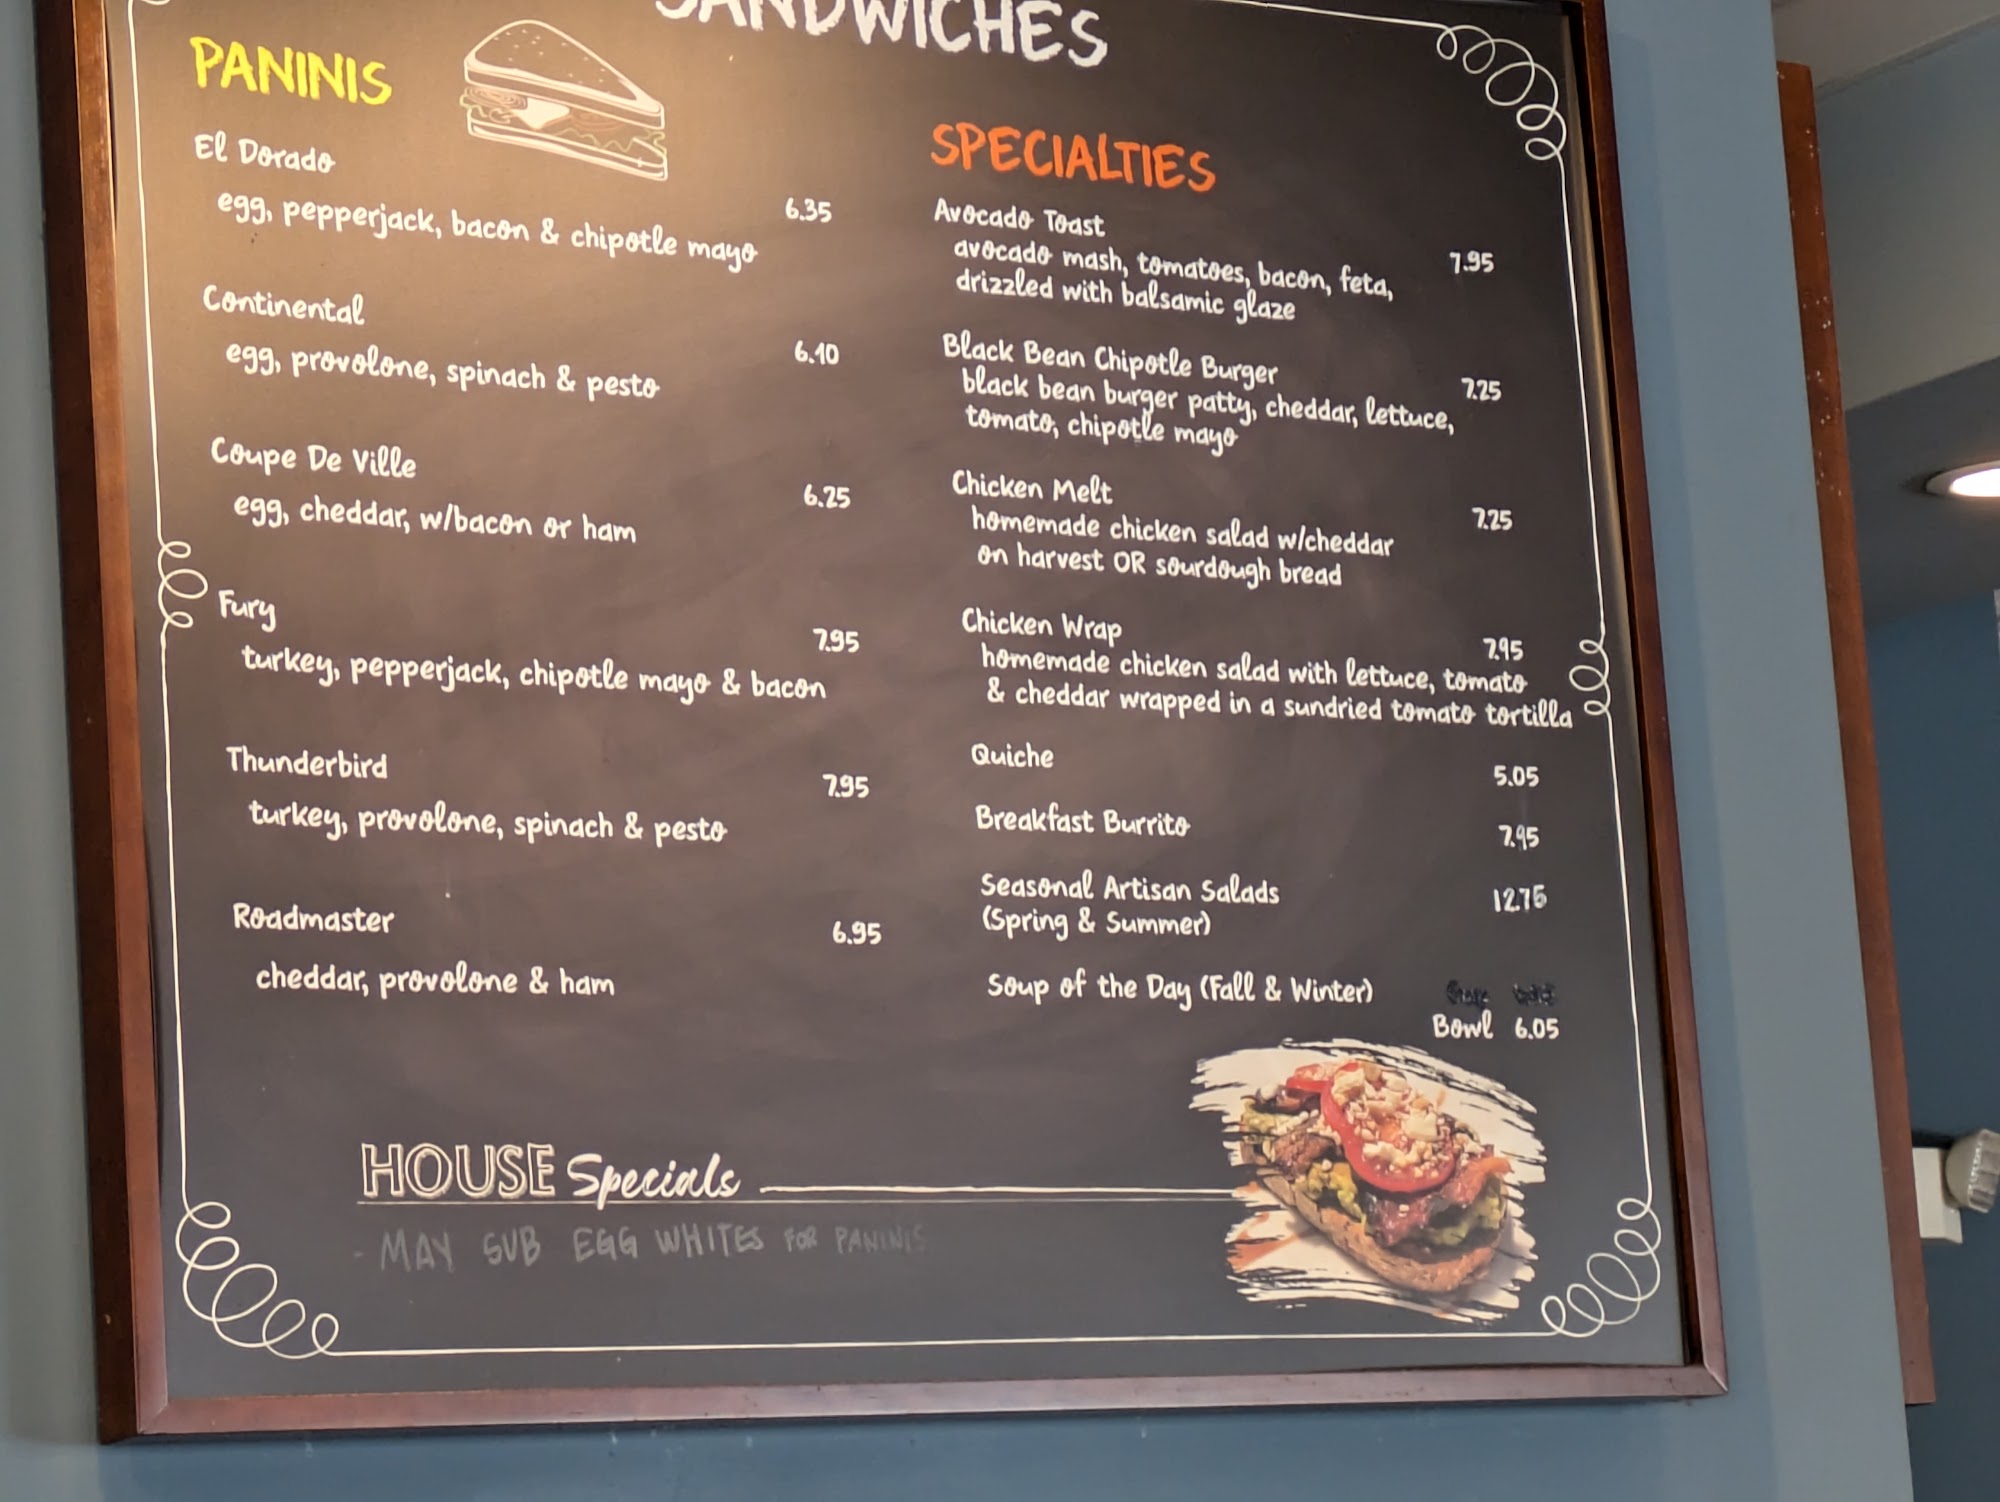 SANDWICHES
PANINIS
El Dorado
egg, pepperjack, bacon & chipotle mayo 6.35
Continental
egg, provolone, spinach & pesto 6.10
Coupe De Ville
egg, cheddar, w/bacon or ham 6.25
Fury
turkey, pepperjack, chipotle mayo & bacon 7.95
Thunderbird
turkey, provolone, spinach & pesto 7.95
Roadmaster
cheddar, provolone & ham 6.95
SPECIALTIES
Avocado Toast
avocado mash, tomatoes, bacon, feta, 7.95
drizzled with balsamic glaze
Black Bean Chipotle Burger
black bean burger patty, cheddar, lettuce, 7.25
tomato, chipotle mayo
Chicken Melt
homemade chicken salad w/cheddar 7.25
on harvest OR sourdough bread
Chicken Wrap 7.95
homemade chicken salad with lettuce, tomato
& cheddar wrapped in a sundried tomato tortilla
Quiche 5.05
Breakfast Burrito 7.95
Seasonal Artisan Salads 12.75
(Spring & Summer)
Soup of the Day (Fall & Winter)
Bowl 6.05
HOUSE Specials
- MAY SUB EGG WHITES FOR PANINIS